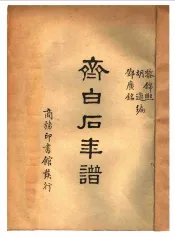 黎錦熙
胡適 編
鄧廣銘
齊白石年譜
商務印書館發行